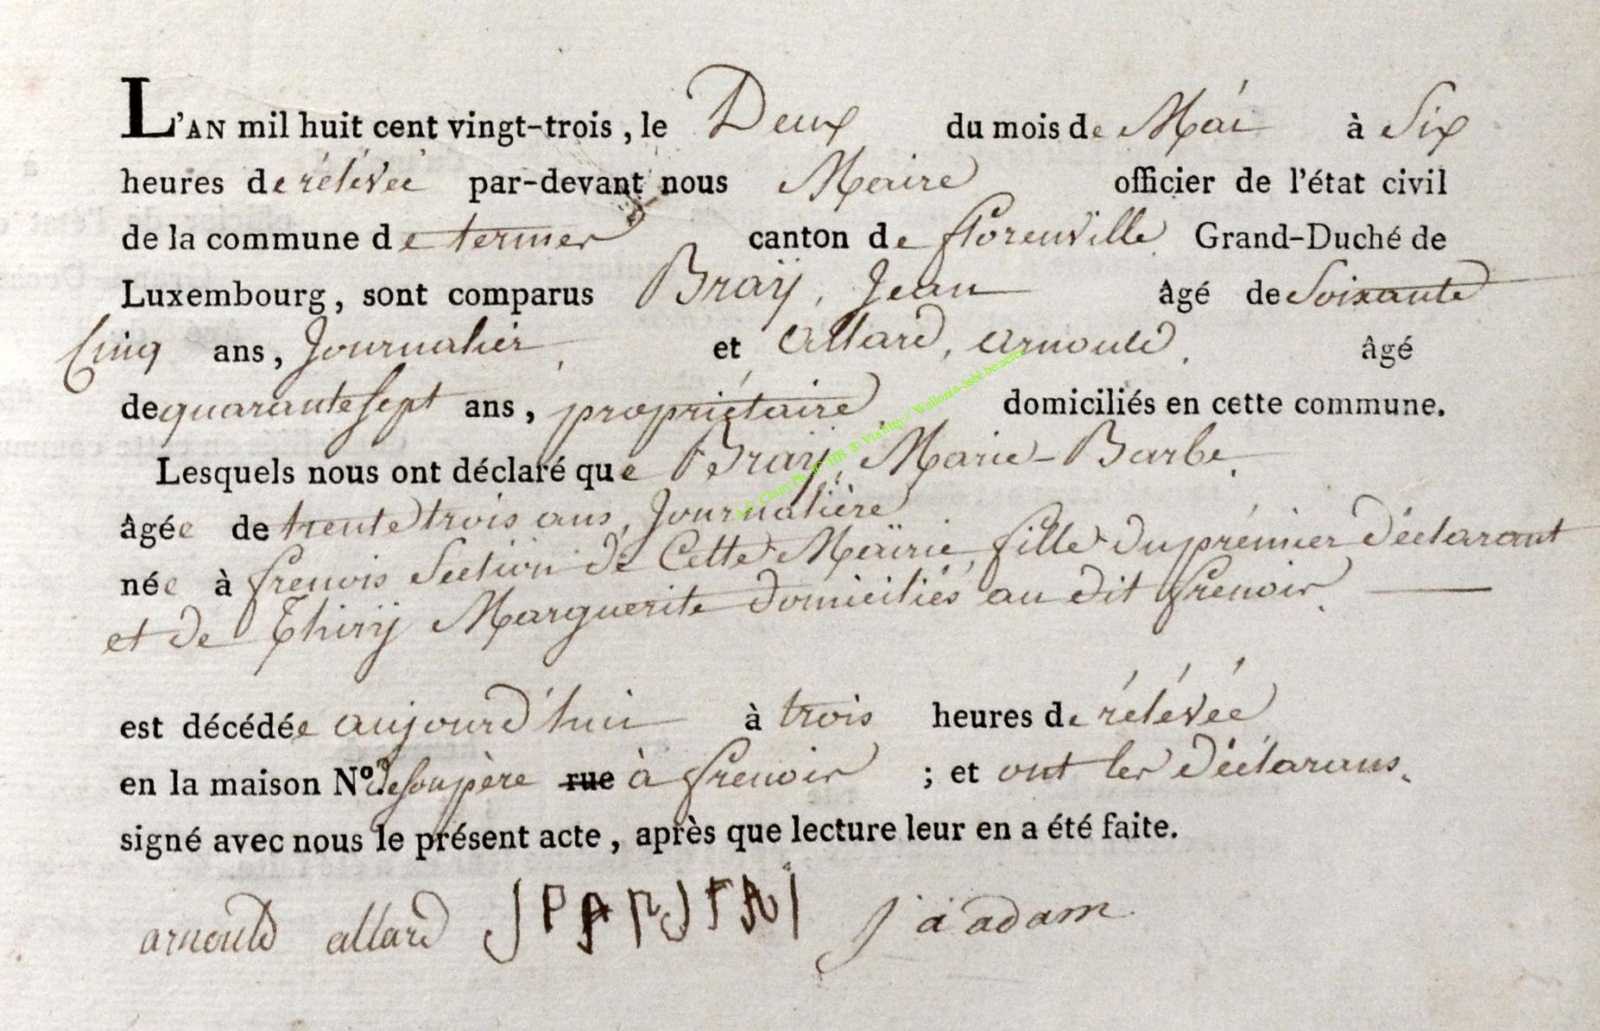 L'AN mil huit cent vingt-trois, le Deux du mois de Mai à Six
heures de rélévée par-devant nous Maire officier de l'état civil
de la commune de termes canton de florenville Grand-Duché de
Luxembourg, sont comparus Braÿ, Jean âgé de Soixante
Cinq ans, Journalier, et Allard, arnould, âgé
de quarante sept ans, propriétaire domiciliés en cette commune.
Lesquels nous ont déclaré que Braÿ, Marie-Barbe,
âgée de trente trois ans, Journalière
née à frenois Section de Cette Mairie, fille du prémier déclarant
et de Thirÿ Marguerite domiciliés au dit frenois.
est décédée aujourd'hui à trois heures de rélévée
en la maison N.º de son père rue à frenois ; et ont les déclarans.
signé avec nous le présent acte, après que lecture leur en a été faite.
arnould allard j a adam